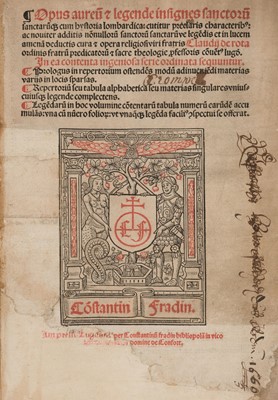 ¶Opus aureū ⁊ legende insignes sanctorū
sanctarūq; cum hystoria lombardica: cutitur preclaris characteribꝰ:
ac nouiter additis nōnulloru sanctorū sanctarūve legēdis et in lucem
amenā deducta cura ⁊ opera religiosi viri fratris Claudij de rota
ordinis fratrū predicatorū ⁊ sacre theologie pfessoris cōvēt lugo.
¶In ea contenta ingeniosa serie ordinata sequuntur.
¶Prologus in repertorium ostendēs modū adinueniēdi materias
varijs in locis sparsas.
¶Repertoriū seu tabula alphabetica seu materias singulares vniuscuiusq; legende complectens.
¶Legēdarū in hoc volumine cōtentarū tabula numerū earūdē accumulās: vna cū nūero folior: vt vnaqq legēda facilꝰ pspectui se offerat.
LF
Cōstantin Fradin.
per Constantinū fradin bibliopolā in vico
de Confort.
1660